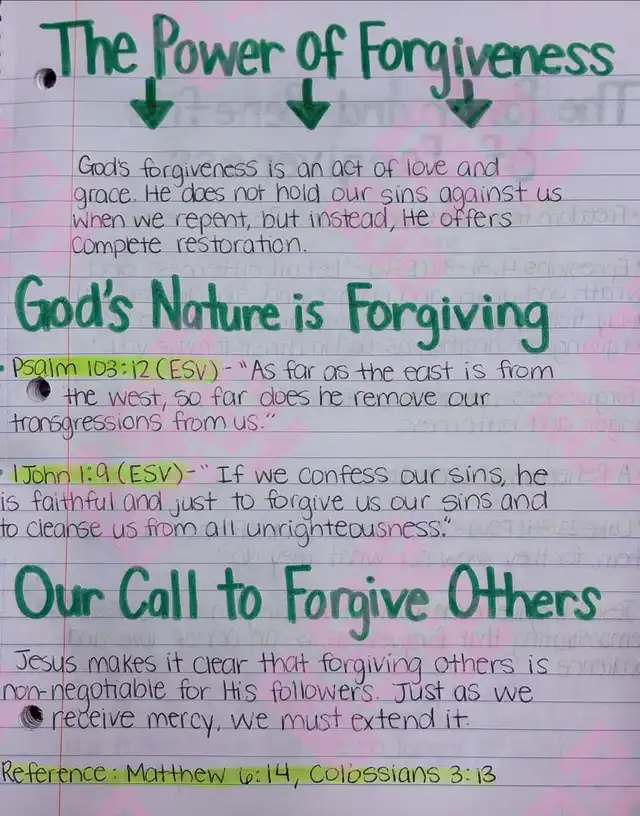 The Power of Forgiveness
God's forgiveness is an act of love and
grace. He does not hold our sins against us
when we repent, but instead, He offers
complete restoration.
God's Nature is Forgiving
• Psalm 103:12 (ESV) - "As far as the east is from
the west, so far does he remove our
transgressions from us."
• 1 John 1:9 (ESV) - "If we confess our sins, he
is faithful and just to forgive us our sins and
to cleanse us from all unrighteousness."
Our Call to Forgive Others
Jesus makes it clear that forgiving others is
non-negotiable for His followers. Just as we
receive mercy, we must extend it.
Reference: Matthew 6:14, Colossians 3:13